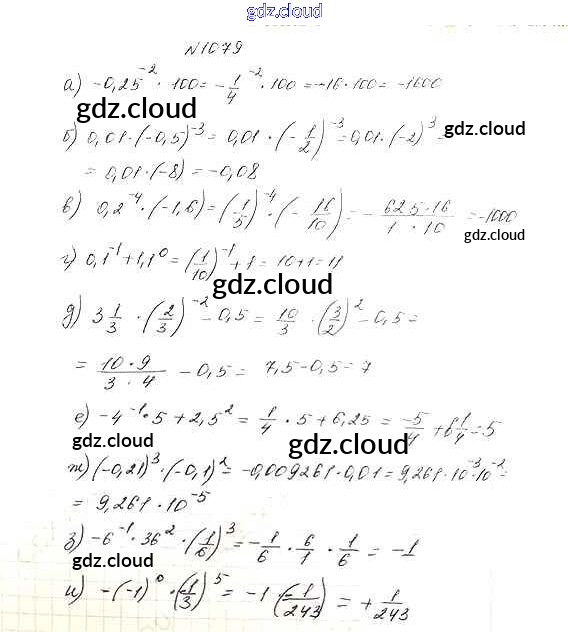 gdz.cloud
N1079
а) -0,25⁻² · 100 = -1/4⁻² · 100 = -16 · 100 = -1600
gdz.cloud
б) 0,01 · (-0,5)⁻³ = 0,01 · (-1/2)⁻³ = 0,01 · (-2)³ =
gdz.cloud
= 0,01 · (-8) = -0,08
в) 0,2⁻⁴ · (-1,6) = (1/5)⁻⁴ · (-16/10) = - 625·16/1·10 = -1000
gdz.cloud
г) 0,1⁻¹ + 1,1⁰ = (1/10)⁻¹ + 1 = 10+1 = 11
gdz.cloud
д) 3 1/3 · (2/3)⁻² - 0,5 = 10/3 · (3/2)² - 0,5 =
gdz.cloud
= 10·9/3·4 - 0,5 = 7,5 - 0,5 = 7
е) -4⁻¹ · 5 + 2,5² = 1/4 · 5 + 6,25 = -5/4 + 6 1/4 = 5
gdz.cloud
gdz.cloud
ж) (-0,21)³ · (-0,1)² = -0,009261 · 0,01 = 9,261 · 10⁻³ · 10⁻² =
= 9,261 · 10⁻⁵
з) -6⁻¹ · 36² · (1/6)³ = -1/6 · 6/1 · 1/6 = -1
gdz.cloud
gdz.cloud
и) -(-1)⁰ · (-1/3)⁵ = -1 · (-1/243) = + 1/243